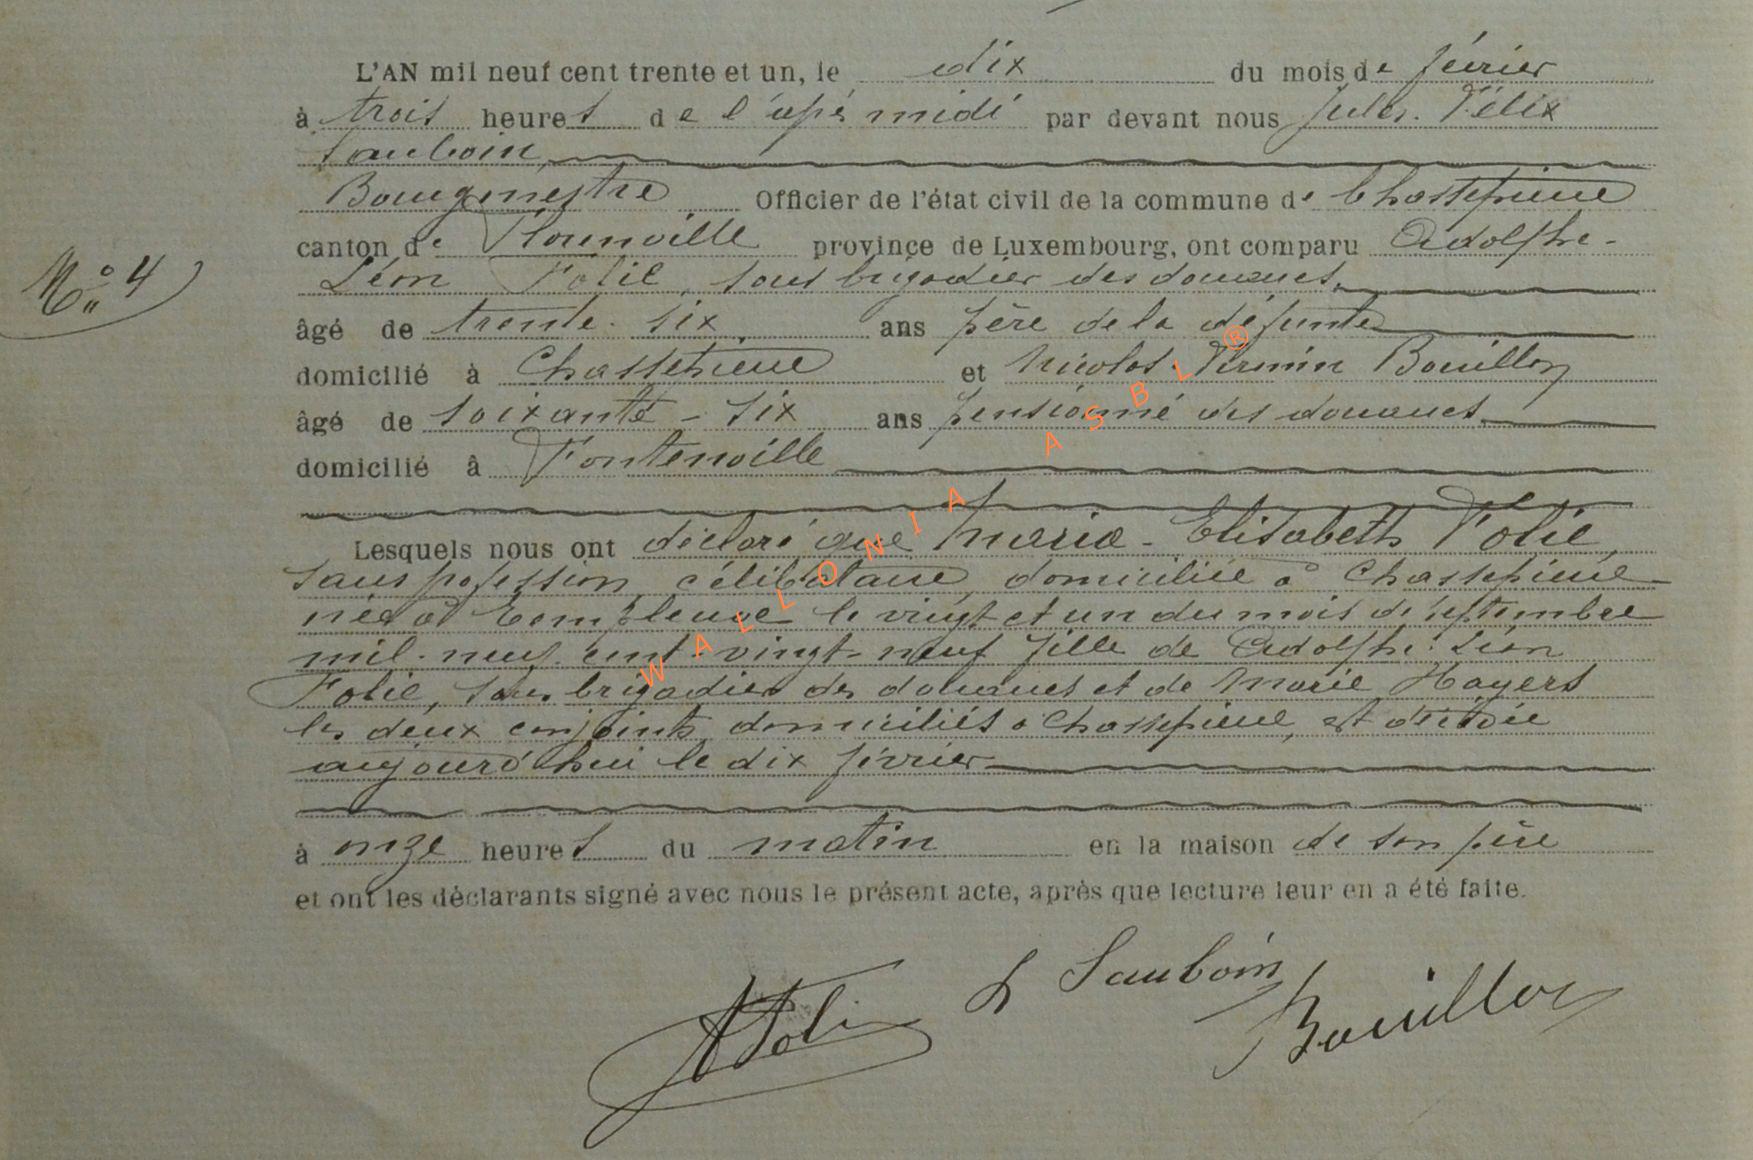 L'AN mil neuf cent trente et un, le dix du mois de février
à trois heures de l'apès midi par devant nous Jules. Félix
Sauboin
Bourgmestre Officier de l'état civil de la commune de Chassepierre
canton de Florenville province de Luxembourg, ont comparu Adolphe-
Léon Folie, sous brigadier des douanes,
No 4
âgé de trente-six ans père de la défunte
domicilié à Chassepierre et Nicolas-Firmin Bouillon
âgé de soixante-six ans pensionné des douanes
domicilié à Fontenoille
Lesquels nous ont déclaré que Maria-Elisabeth Folie,
sans profession, célibataire, domiciliée à Chassepierre
née à Templeuve le vingt et un du mois de septembre
mil-neuf cent-vingt-neuf fille de Adolphe-Léon
Folie, sous brigadier des douanes et de Marie Hayers
les deux conjoints domiciliés à Chassepierre, est décédée
aujourd'hui le dix février
à onze heures du matin en la maison de son père
et ont les déclarants signé avec nous le présent acte, après que lecture leur en a été faite.
A Folie J Sauboin Bouillon
WALLONIA ASBL ®